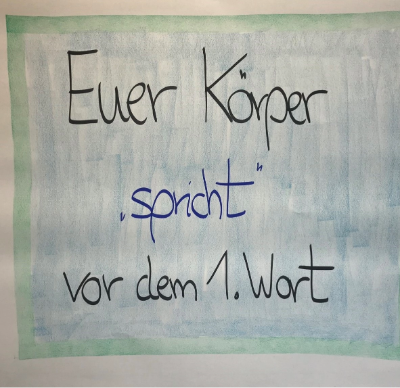 Euer Körper
„spricht“
vor dem 1. Wort